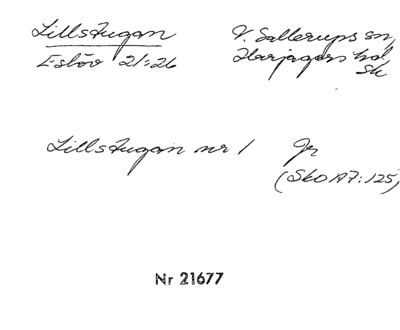 Lillstugan
V. Sallerups sn,
Eslöv 21:26
Harjagers hd,
Sk
Lillstugan nr 1 Jr
(SkO A7:125)
Nr 21677